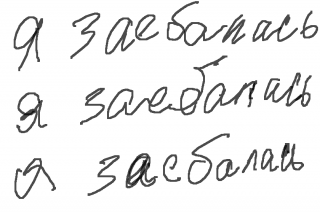 я заебалась
я заебалась
я заебалась